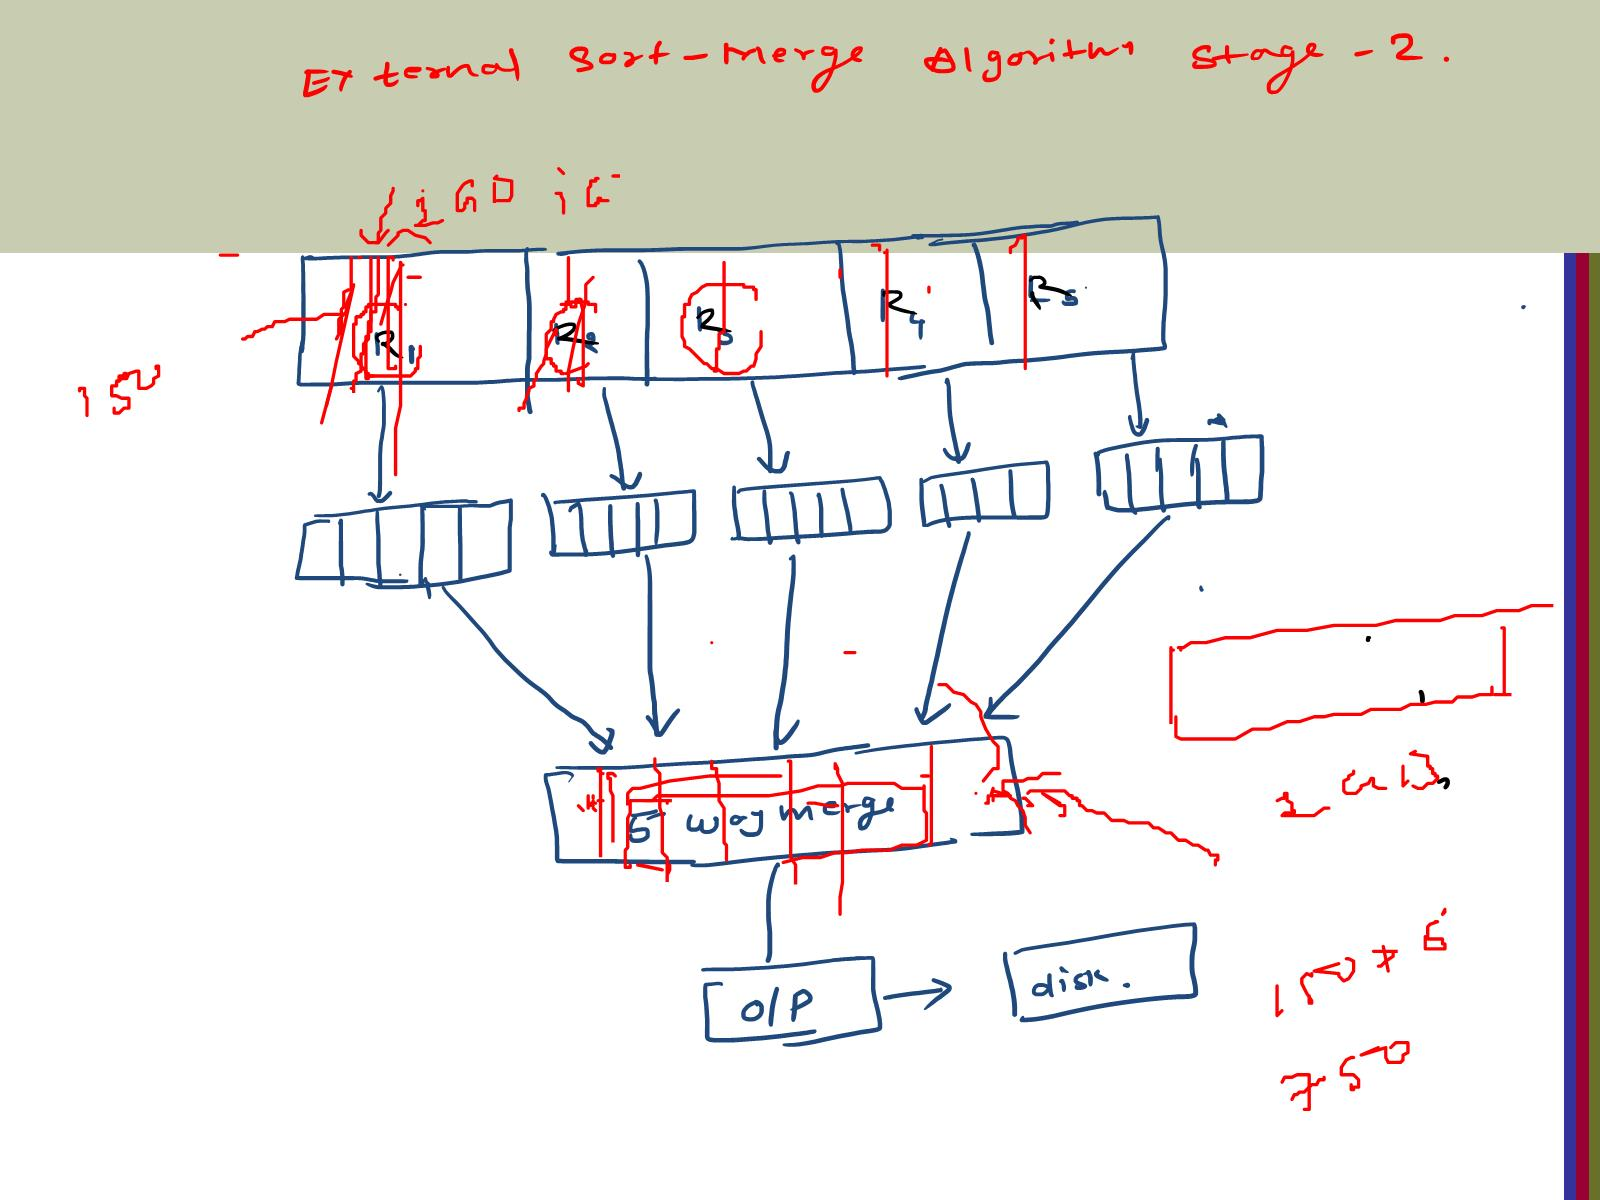 External Sort-Merge Algorithm Stage-2.
R1 R2 R3 R4 R5
150
5 way merge
O/P
disk.
750